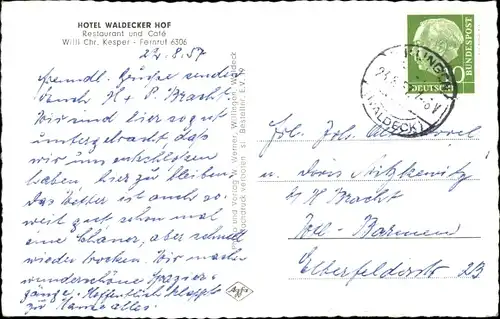 HOTEL WALDECKER HOF
Restaurant und Café
Willi Chr. Kesper - Fernruf 6306
22.8.57
freundl. Grüsse sendet
H + P. Bracht
Wir sind hier so gut
untergebracht daß
wir uns entschlossen
haben hier zu bleiben.
Das Wetter ist auch so
weit gut schon mal
eine Schauer, aber schnell
wieder trocken. Wir machen
wunderschöne Spazier-
gänge. Hoffentlich klappts
zu Hause alles.
und Verlag W. Werner, Willingen, Waldeck
Nachdruck verboten
Bestellnr. E.v. 19
Agfa
DEUTSCHE
BUNDESPOST
(WALDECK)
Frl. Joh.
u. Doris
b/ H Bracht
Barmen
Elberfelderstr 23